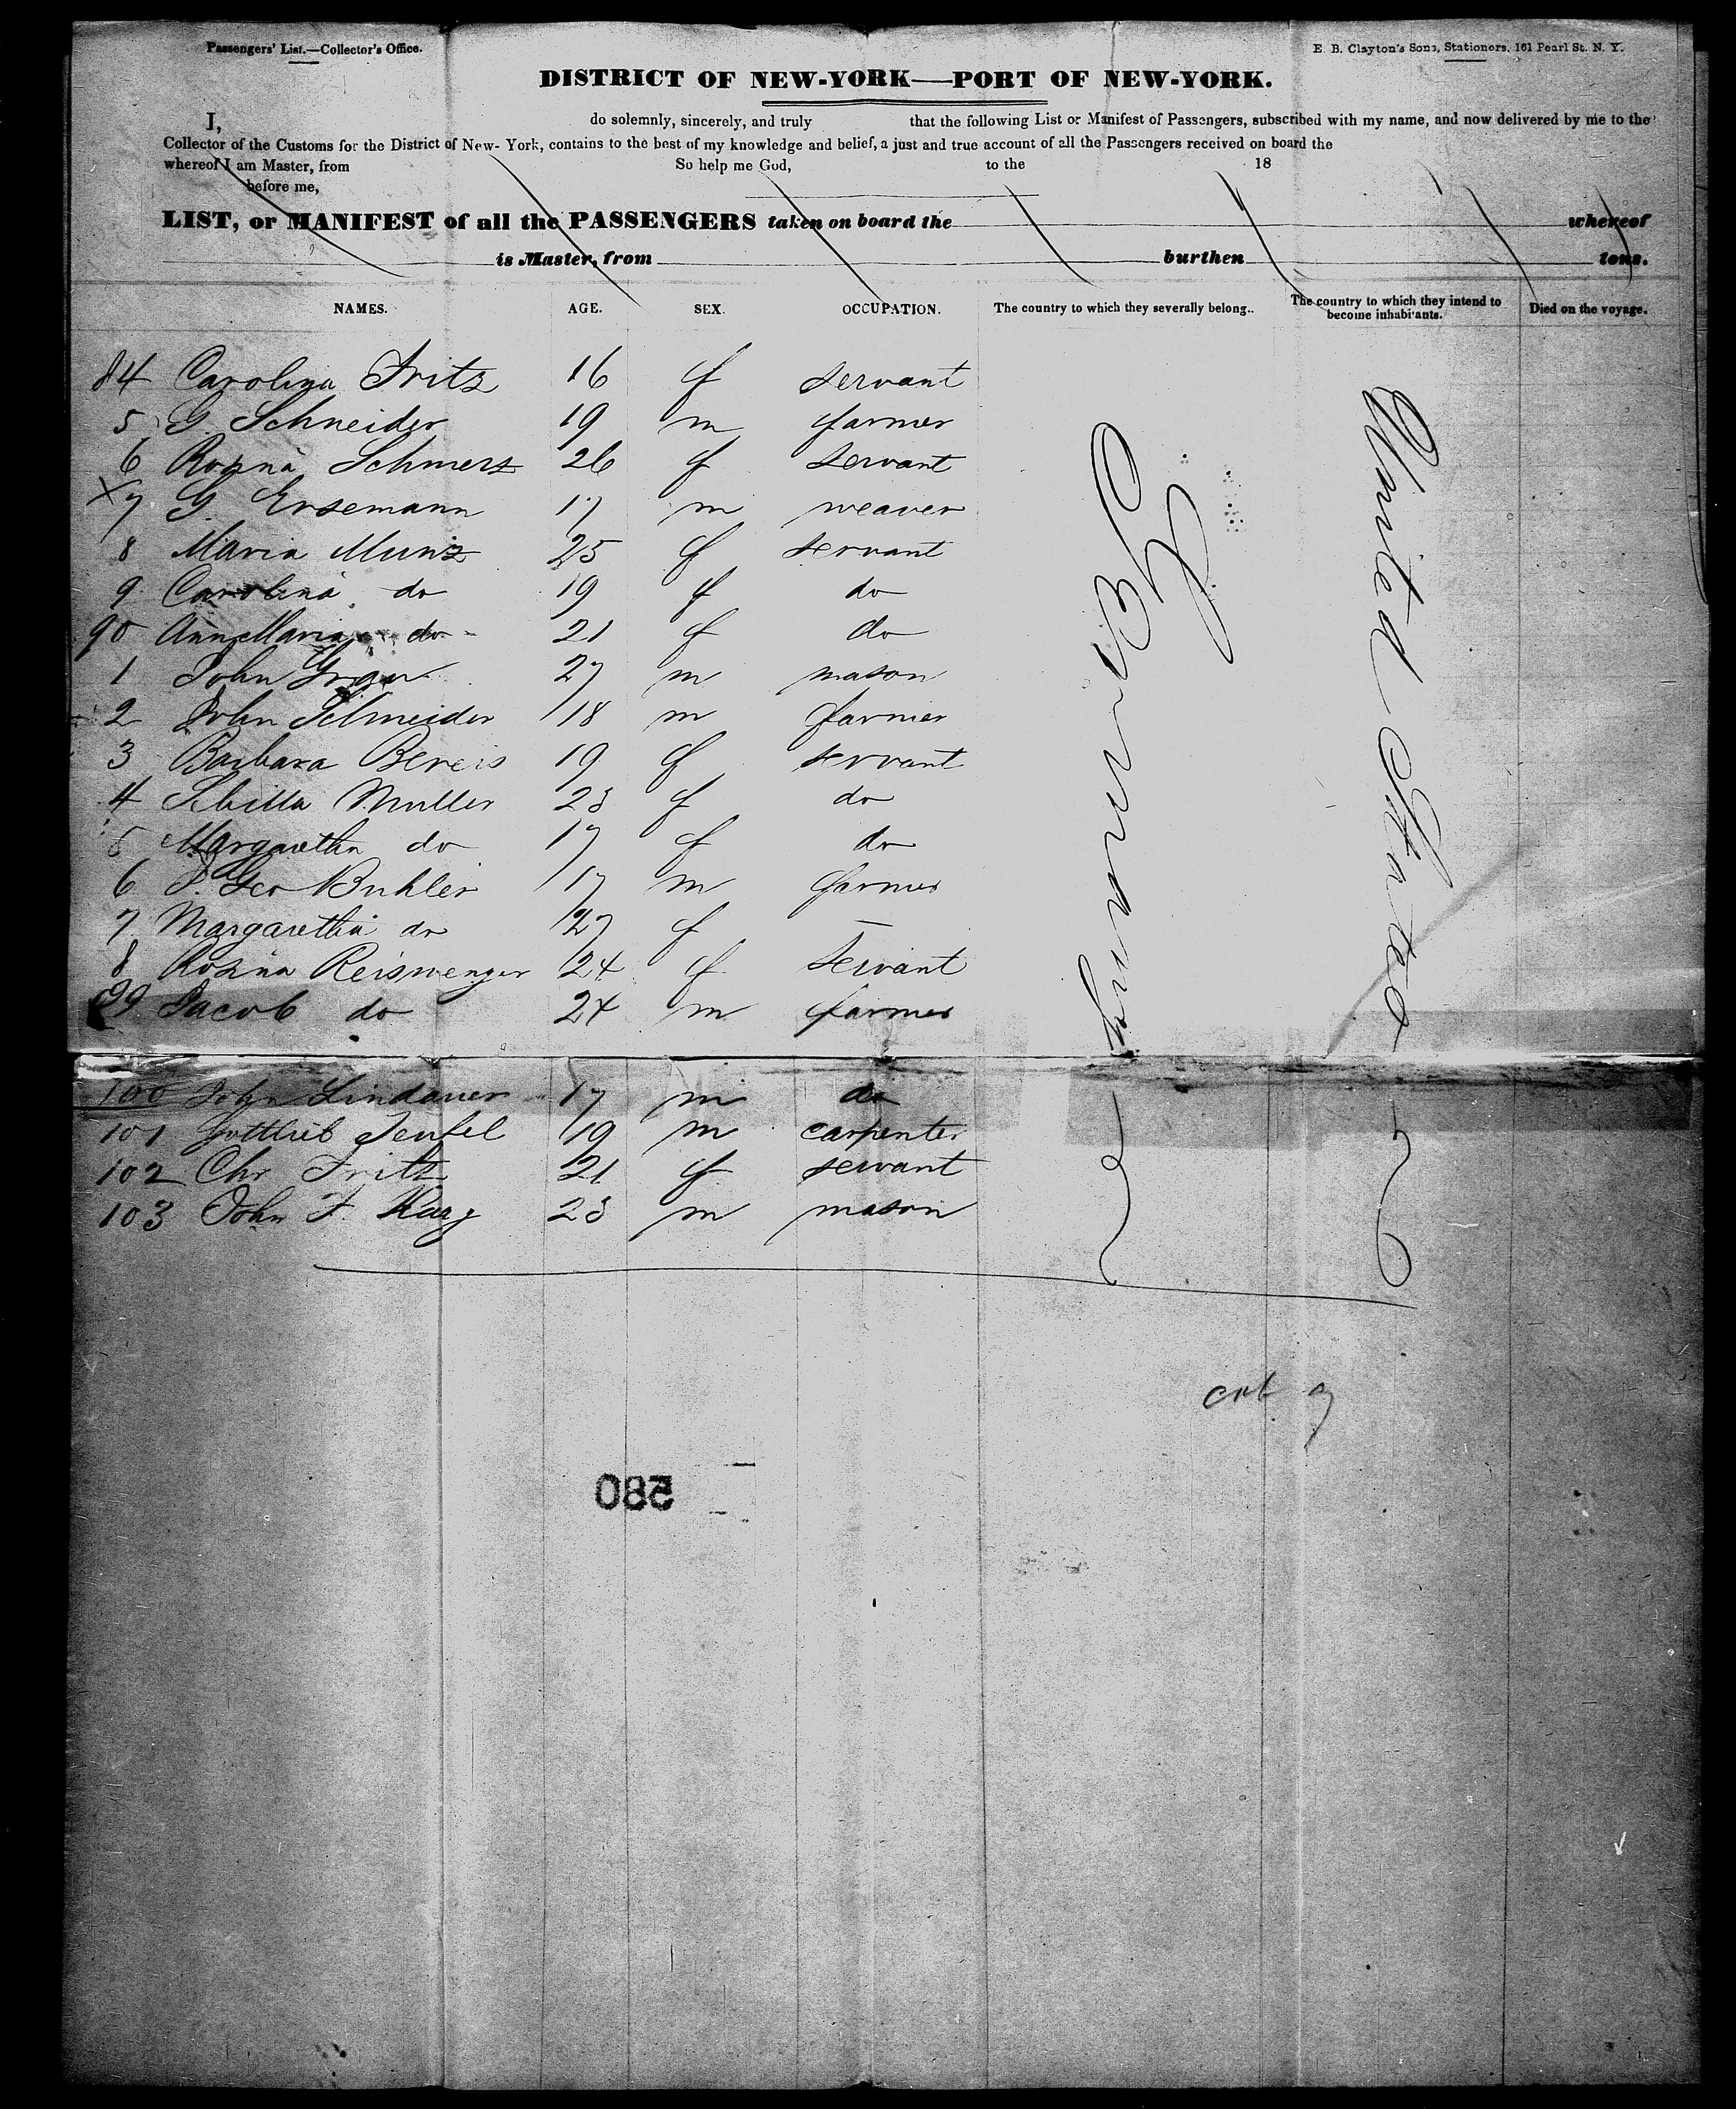 Passengers' List.—Collector's Office.
E. B. Clayton's Sons, Stationers, 161 Pearl St. N. Y.
DISTRICT OF NEW-YORK—PORT OF NEW-YORK.
I, do solemnly, sincerely, and truly that the following List or Manifest of Passengers, subscribed with my name, and now delivered by me to the
Collector of the Customs for the District of New-York, contains to the best of my knowledge and belief, a just and true account of all the Passengers received on board the
whereof I am Master, from So help me God, to the 18
before me,
LIST, or MANIFEST of all the PASSENGERS taken on board the whereof
is Master, from burthen tons.
NAMES. AGE. SEX. OCCUPATION. The country to which they severally belong. The country to which they intend to become inhabitants. Died on the voyage.
84 Carolina Fritz 16 f servant
5 G. Schneider 19 m farmer
6 Rosina Schmerz 26 f servant
x7 G. Ensemann 17 m weaver
8 Maria Munz 25 f servant
9 Carolina do 19 f do
90 Ann Maria do 21 f do
1 John Grau 27 m mason
2 John Schneider 18 m farmer
3 Barbara Bereis 19 f servant
4 Sibilla Muller 23 f do
5 Margaretha do 17 f do
6 J. Geo Buhler 17 m farmer
7 Margaretha do 27 f —
8 Rosina Reiswenger 24 f servant
99 Jacob do 24 m farmer
100 John Lindauer 17 m do
101 Gottlieb Teufel 19 m carpenter
102 Chr Fritz 21 f servant
103 John F. Karg 23 m mason
Germany
United States
580